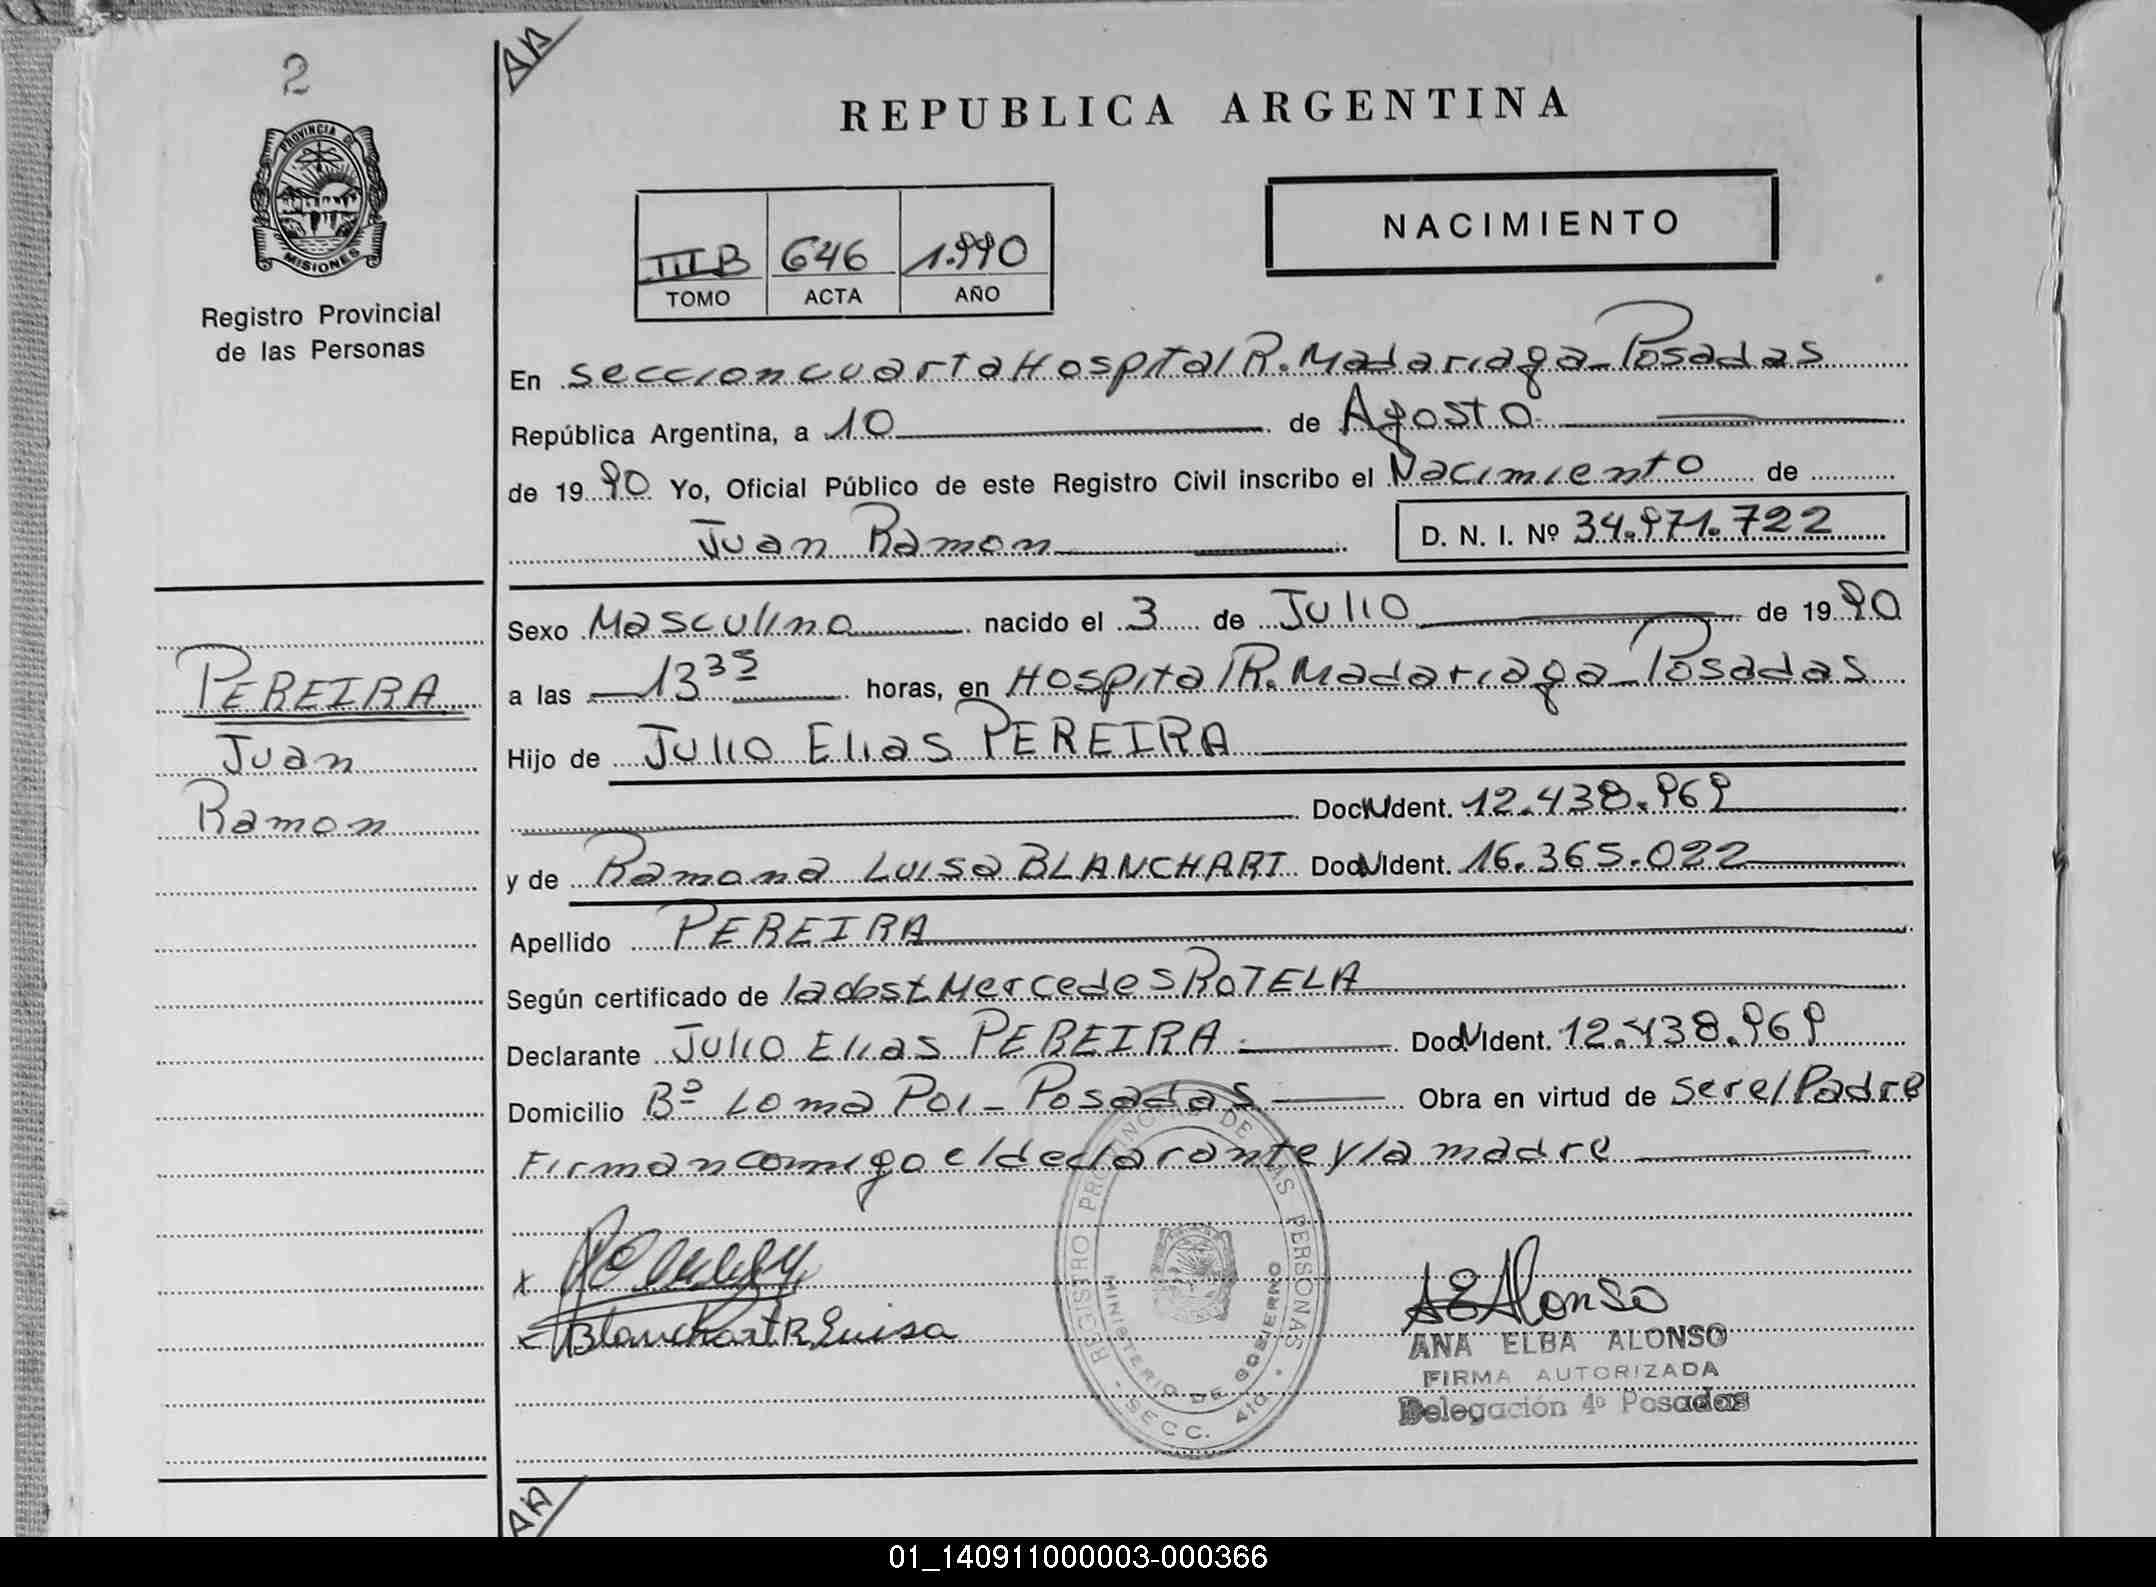 2
AA
PROVINCIA DE
MISIONES
Registro Provincial
de las Personas
REPUBLICA ARGENTINA
III B 646 1.990
TOMO ACTA AÑO
NACIMIENTO
En seccion cuarta Hospital R. Madariaga - Posadas
República Argentina, a 10 de Agosto
de 1990 Yo, Oficial Público de este Registro Civil inscribo el Nacimiento de
Juan Ramon D. N. I. Nº 34.971.722
Sexo Masculino nacido el 3 de Julio de 1990
a las 13 35 horas, en Hospital R. Madariaga - Posadas
Hijo de Julio Elias PEREIRA
Doc. Ident. 12.438.969
y de Ramona Luisa BLANCHART Doc. Ident. 16.365.022
Apellido PEREIRA
Según certificado de la obst Mercedes ROTELA
Declarante Julio Elias PEREIRA Doc. Ident. 12.438.969
Domicilio Bº Loma Poi - Posadas Obra en virtud de ser el Padre
Firman comigo el declarante y la madre
PEREIRA
Juan
Ramon
x
x Blanchart R Luisa
REGISTRO PROVINCIAL DE LAS PERSONAS
MINISTERIO DE GOBIERNO
SECC. 4ta
AEAlonso
ANA ELBA ALONSO
FIRMA AUTORIZADA
Delegación 4º Posadas
AA
01_140911000003-000366